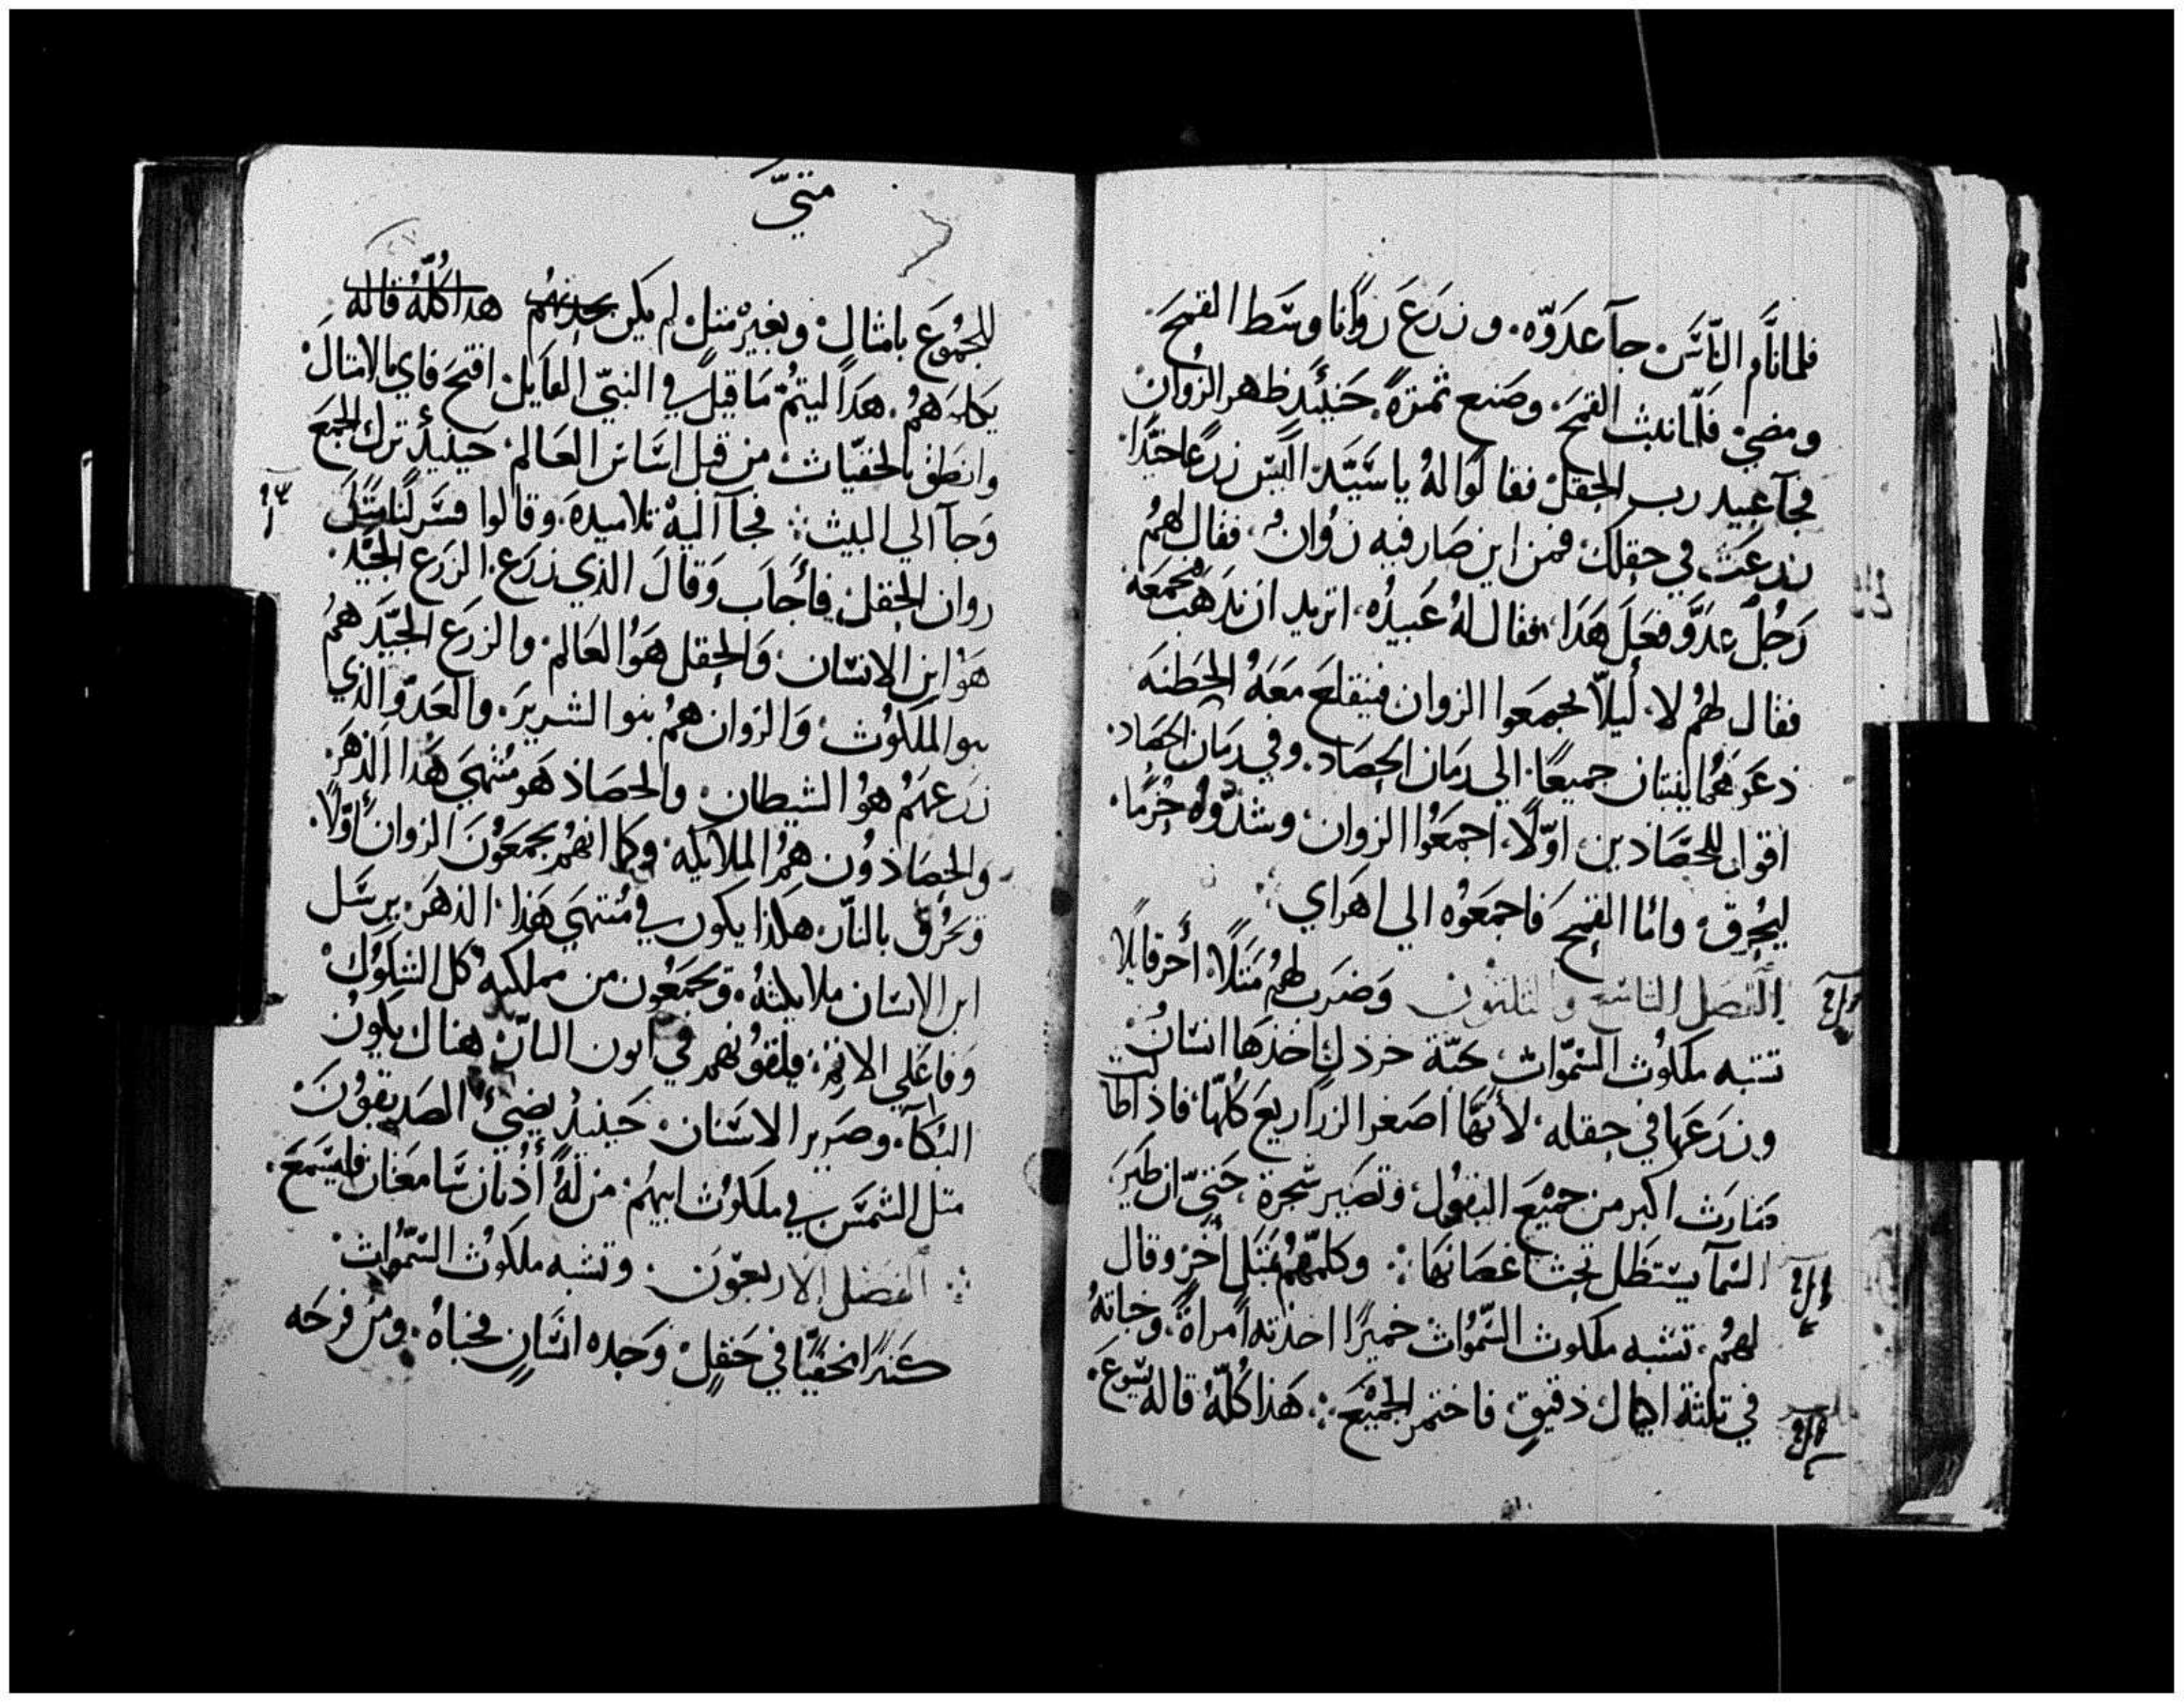 فلما نَّام النّاسَ جآ عدَوّه. وزرَعَ زوانا وسَط القمحَ.
ومضي. فلّما نبث القمحَ. وصَنع ثمرَهً. حَنيئَد ظهر الزوان
فجآ عبيد رب الحقل فقالوا لهُ يا سَيّد. اليسَ زرعًا جيّدا
زرعَت في حقلك، فمن اين صَار فيه زوُانُ، ففال لهُم
رَجُل عدَوَّ فعَلَ هَدَا، فقال لهُ عَبيدُه، اتريد ان ندهَب فنجمَعهَ
فقال لهُم لا. لَيلاّ تجمعَوا الزوان فينقلعَ معَهُ الحَطنه
دعَوهمُا ينبتان جميعًا. الي زمَان الحصَاد. وفي زمَان الحصَاد.
اقول للحصّادين، اوّلًا، اجمعَوُا الزوان، وشدّوُه حُزمًا.
ليُحرق، وامّا القمحَ فاجمعَوُه الي اهرَاي ؞
الفصَل التاسَع والثلثون وَضرَب لهُم مَتلًا أخر قايلًا
تشبه ملكوُث السّمَوات، كحبّة خردل اخذهَا انسَانُ
وزرَعَها في حقله، لأنهّا اصَغر الزراريعَ كُلهّا، فاذا طالت
صَارَت اكبر من جميْعَ البقوُل، وتصَير شجرة، حَتيّ ان طَيرَ
السّمآ يستَظل تحث اغصَانهَا ؞ وكلمّهُم بمَتَل أخرَ وقال
لهُمُ، تشبه ملكوث السّمَوُات خميرًا اخذته امراةً، وخباتهُ
في تلثة اكيال دقيق، فاختمر الجميْعَ ؞ هَذا كُلّهُ قاله يسَوعَ.
متيّ
للجمُوعَ بامثال، وبغيرْ متل لم يكن يحدثهُم هدا كُلّهُ قاله
يكلمهُم. هَدَا ليتمُ مَا قيل في النبيّ القايل، افتحَ فاي بالامثال
وانطق بالخفيّات، من قبل اسَاس العَالم، حينيدٍ ترك الجمعَ
وَجآ الي البيث ؞ فجآ اليهْ تلاميدهَ. وقالوا فسَر لنا متَل
زوان الحقل، فأَجابَ وَقالَ الذي زرَع. الزرَع الجيّد.
هَوُ ابن الانسَان، وَالحقل هَوُ العَالم، والزرَع الجيّد همُ
بنوا الملكوُت، وَالزوان همُ بنوا الشريرَ. والعَدوّ الذي
زرَعهَمُ هوُ الشيطان، والحصَاد هَو مُنتهيَ هَدا الدهرَ.
والحصَادوُن همُ الملايكه، وكما انهُم يجمَعَوُنَ الزوان أوّلًا.
وَيحُرق بالنّار، هكذا يكون في مُنتهيَ هَذا الدهَر. يرسَل
ابن الانسَان ملايكتهُ. ويجمَعَوُن من مملكته كل الشكوُك
وَفاعَلي الاتم، فيلقوُنهم في اتون النّار، هناك يكوُن
البُكآ. وصَرير الاسنان. حَينيدٍ يضيُ الصَديقوُنَ
متل الشمسَ في ملكوُت ابيهمُ. من لهُ أُدُنان سَامعَتان فليسَمعَ.
؞ الفصَل الاربعَوّن. وتشبه ملكوُث السّمَوُات
كنزًا مخفيًّا في حَقلٍ، وَجده انسَانٍ فخباهُ. ومنُ فرحَه